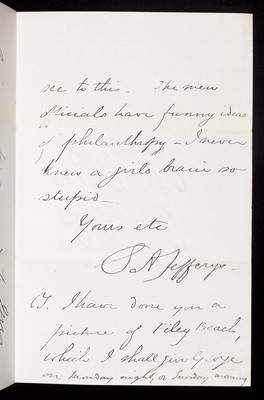 see to this. The men
officials have funny ideas
of philanthropy – I never
knew a girls brain so
stupid –
Yours etc
S A Jefferys.
I have done you a
picture of Filey Beach,
which I shall give George
on Monday night, or Tuesday morning